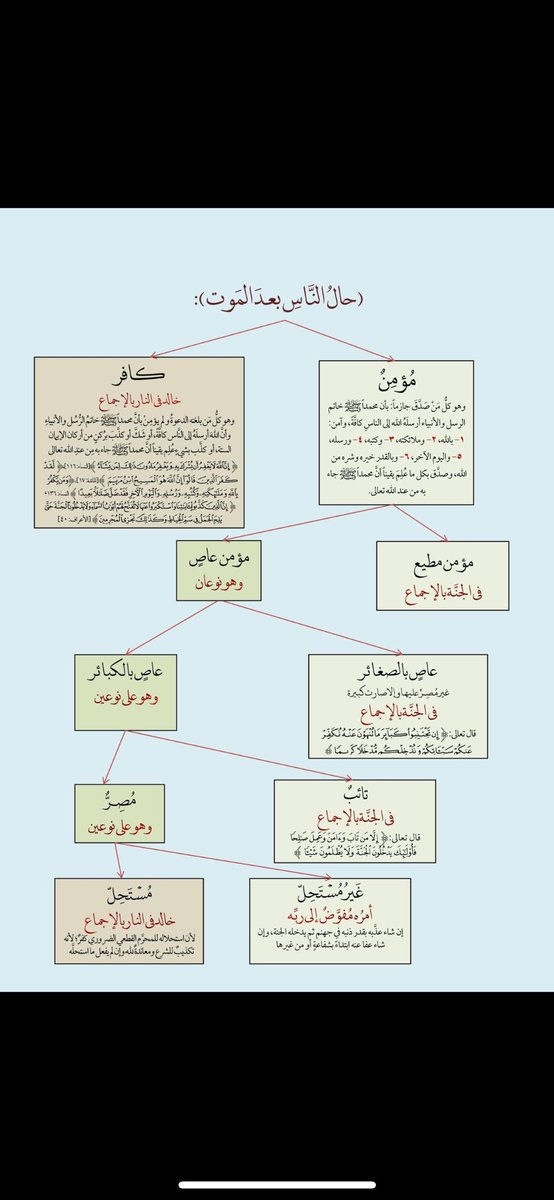 (حالُ النَّاسِ بعدَ المَوت):
مُؤمِنٌ
وهو كلُّ مَنْ صَدَّقَ جازماً: بأن محمداً ﷺ خاتم
الرسل والأنبياء أرسلَهُ الله إلى الناسِ كافَّةً، وآمن:
١- بالله، ٢- وملائكته، ٣- وكتبه، ٤- ورسله،
٥- واليوم الآخر، ٦- وبالقدر خيره وشره من
الله، وصدَّق بكل ما عُلِمَ يقيناً أنَّ محمداً ﷺ جاء
به من عند الله تعالى.
كافر
خالد في النار بالإجماع
وهو كلُّ مَن بلغته الدعوةُ ولم يؤمِنْ بأنَّ محمداً ﷺ خاتمُ الرُّسل والأنبياءِ
وأنَّ اللهَ أرسلَهُ إلى النَّاس كافَّة، أو شَكَّ أو كذَّبَ بركنٍ من أركان الإيمان
الستة، أو كذَّب بشيءٍ عُلِم يقيناً أنَّ محمداً ﷺ جاء به من عند الله تعالى
﴿إِنَّ اللَّهَ لَا يَغْفِرُ أَن يُشْرَكَ بِهِ وَيَغْفِرُ مَا دُونَ ذَٰلِكَ لِمَن يَشَاءُ﴾ [النساء:١١٦] ﴿لَقَدْ
كَفَرَ الَّذِينَ قَالُوا إِنَّ اللَّهَ هُوَ الْمَسِيحُ ابْنُ مَرْيَمَ﴾ [المائدة:١٧] ﴿وَمَن يَكْفُرْ
بِاللَّهِ وَمَلَائِكَتِهِ وَكُتُبِهِ وَرُسُلِهِ وَالْيَوْمِ الْآخِرِ فَقَدْ ضَلَّ ضَلَالًا بَعِيدًا﴾ [النساء:١٣٦]
﴿إِنَّ الَّذِينَ كَذَّبُوا بِآيَاتِنَا وَاسْتَكْبَرُوا عَنْهَا لَا تُفَتَّحُ لَهُمْ أَبْوَابُ السَّمَاءِ وَلَا يَدْخُلُونَ الْجَنَّةَ حَتَّىٰ
يَلِجَ الْجَمَلُ فِي سَمِّ الْخِيَاطِ وَكَذَٰلِكَ نَجْزِي الْمُجْرِمِينَ﴾ [الأعراف: ٤٠]
مؤمن مطيع
في الجنَّة بالإجماع
مؤمن عاصٍ
وهو نوعان
عاصٍ بالصغائر
غير مُصِرٍّ عليها وإلا صارت كبيرة
في الجنَّة بالإجماع
قال تعالى: ﴿إِن تَجْتَنِبُوا كَبَائِرَ مَا تُنْهَوْنَ عَنْهُ نُكَفِّرْ
عَنكُمْ سَيِّئَاتِكُمْ وَنُدْخِلْكُم مُّدْخَلًا كَرِيمًا﴾
عاصٍ بالكبائر
وهو على نوعين
تائبٌ
في الجنَّة بالإجماع
قال تعالى: ﴿إِلَّا مَن تَابَ وَآمَنَ وَعَمِلَ صَالِحًا
فَأُولَٰئِكَ يَدْخُلُونَ الْجَنَّةَ وَلَا يُظْلَمُونَ شَيْئًا﴾
مُصِرٌّ
وهو على نوعين
غَيرُ مُسْتَحِلّ
أمرُه مُفَوَّضٌ إلى ربِّه
إن شاء عذَّبه بقدر ذنبه في جهنم ثم يدخله الجنة، وإن
شاء عفا عنه ابتداءً بشفاعةٍ أو من غيرها
مُسْتَحِلّ
خالد في النار بالإجماع
لأن استحلاله للمحرَّم القطعي الضروري كفرٌ؛ لأنه
تكذيبٌ للشرع ومعاندةٌ لله وإن لم يفعل ما استحلَّه